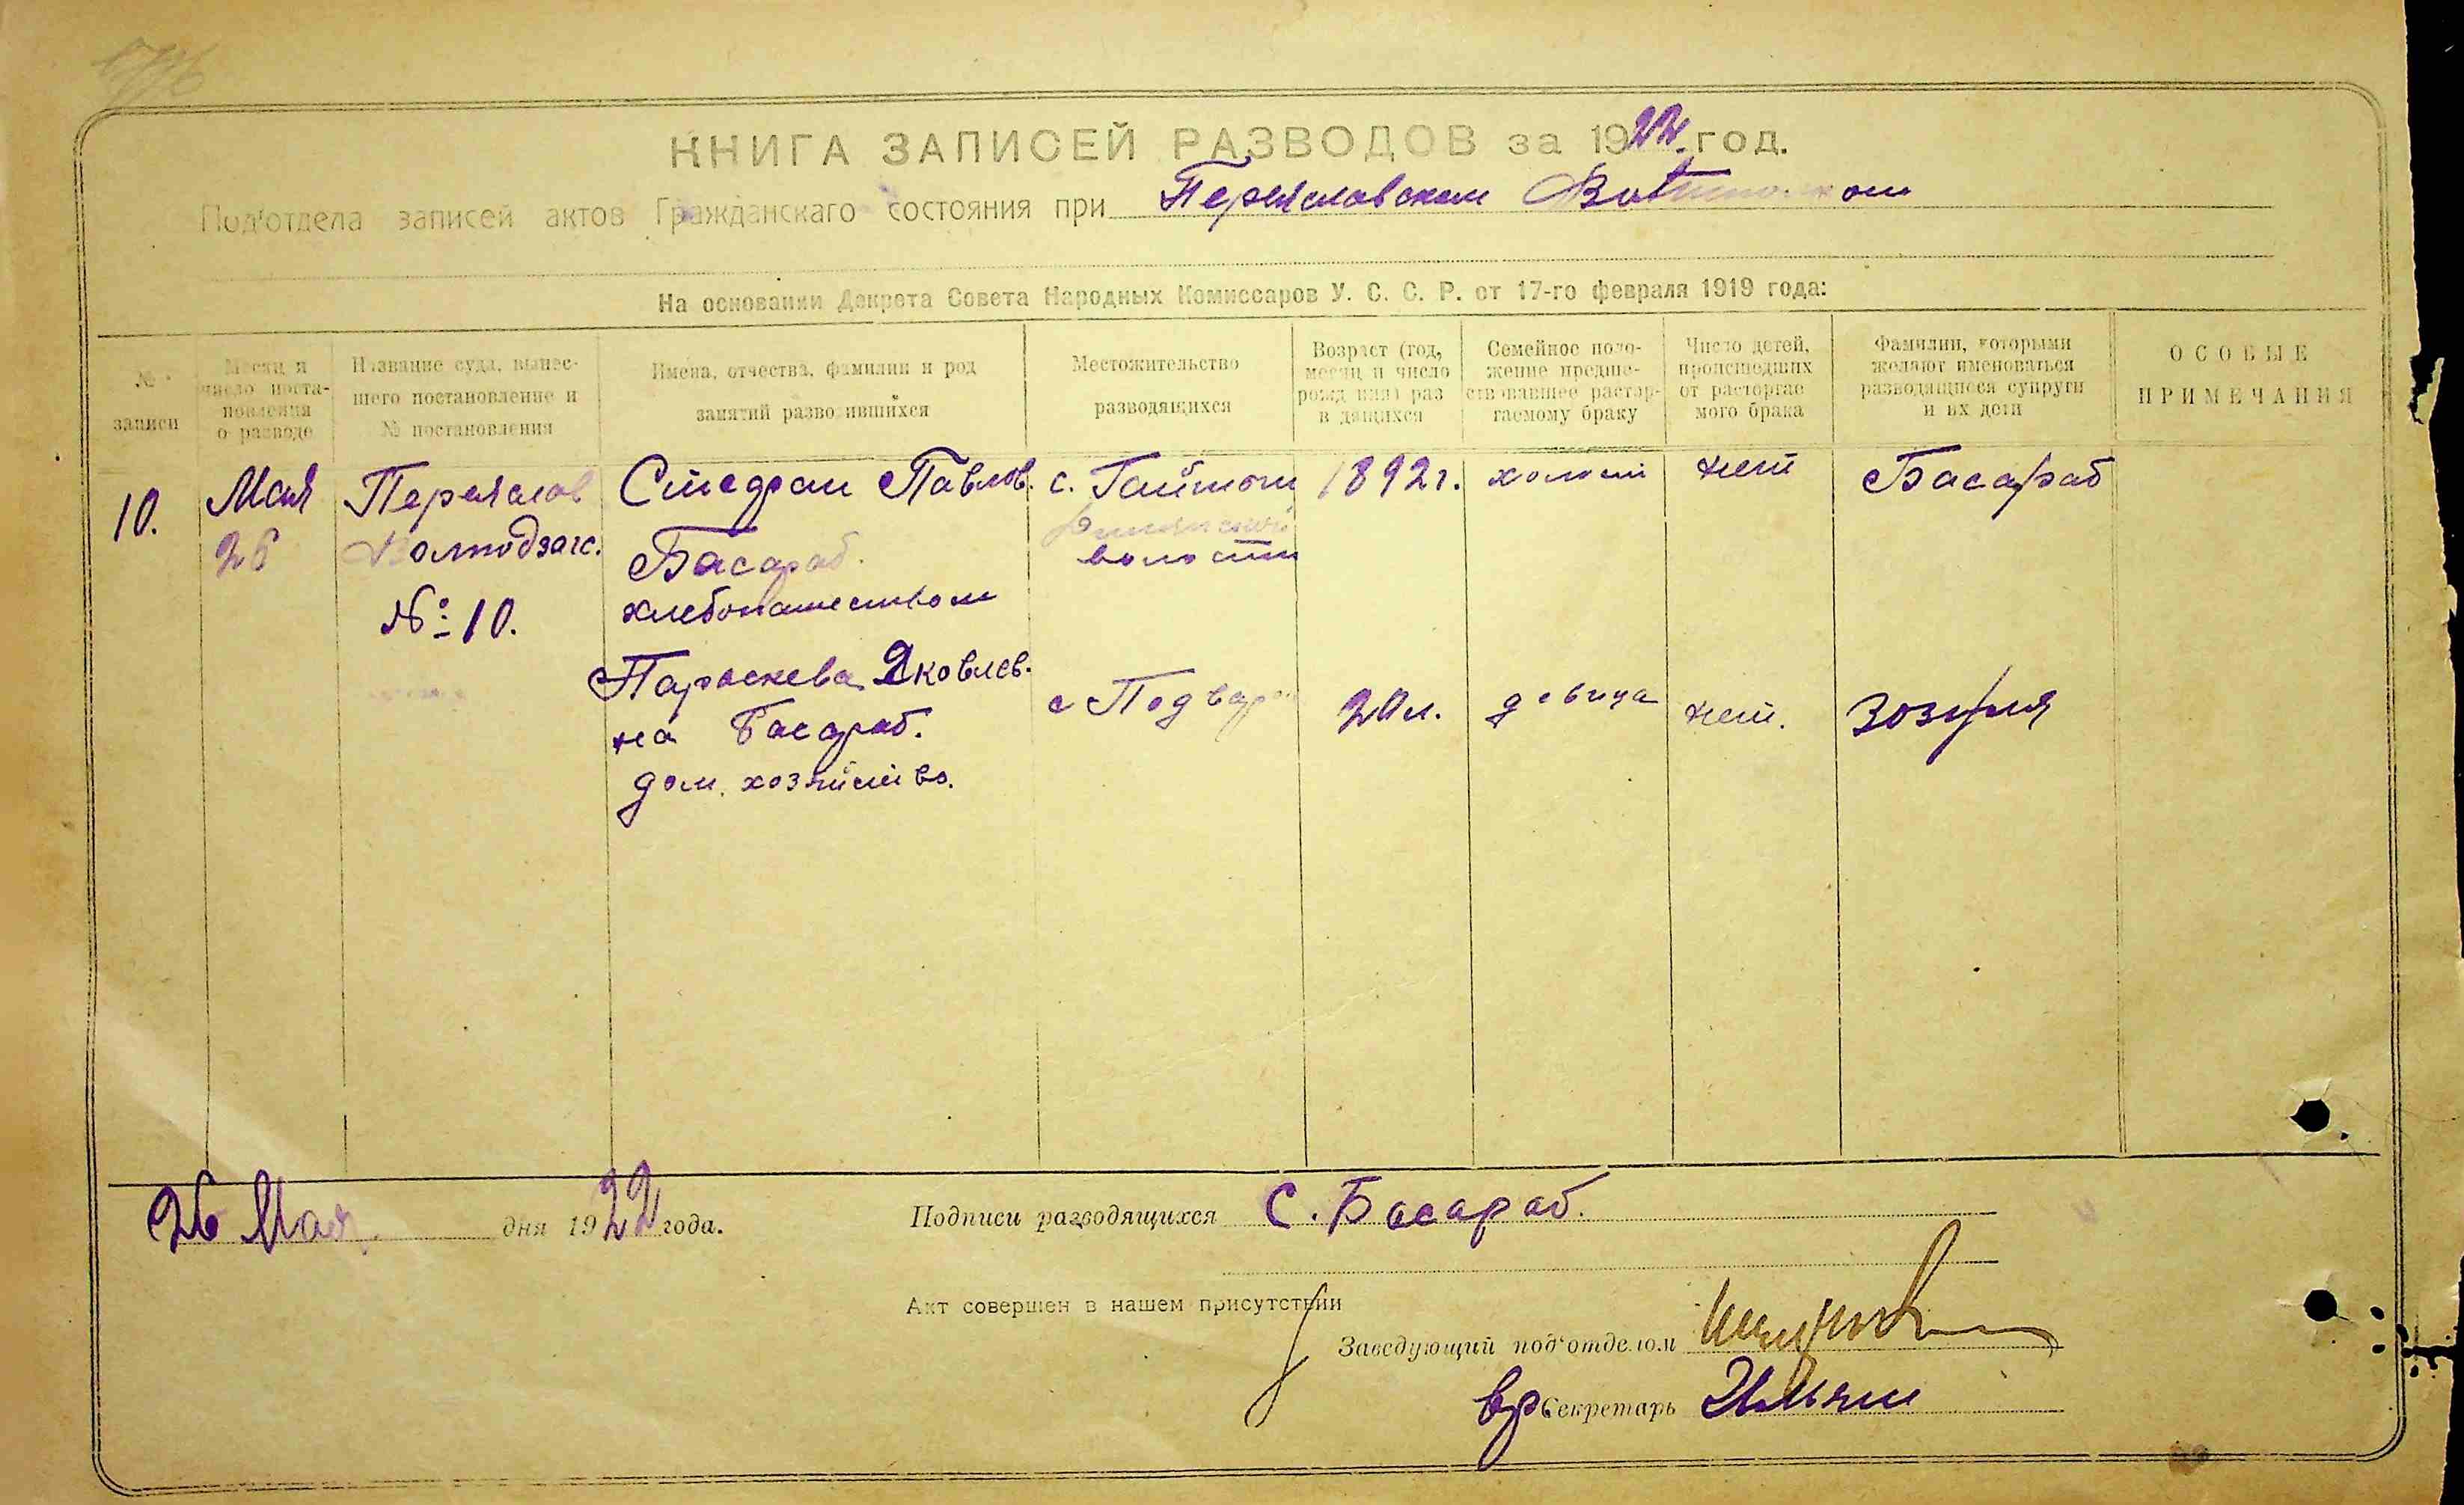 КНИГА ЗАПИСЕЙ РАЗВОДОВ за 1922 год.
Под'отдела записей актов Гражданскаго состояния при Переяславском
На основании Декрета Совета Народных Комиссаров У. С. С. Р. от 17-го февраля 1919 года:
№
записи
Месяц и
число поста-
новления
о разводе
Название суда, вынес-
шего постановление и
№ постановления
Имена, отчества, фамилии и род
занятий разводившихся
Местожительство
разводящихся
Возраст (год,
месяц и число
рождения) раз
в дящихся
Семейное поло-
жение предше-
ствовавшее растор-
гаемому браку
Число детей,
происшедших
от расторгае
мого брака
Фамилии, которыми
желают именоваться
разводящиеся супруги
и их дети
ОСОБЫЕ
ПРИМЕЧАНИЯ
10.
Мая
26
Переяслов
№ 10.
Стефан Павлов.
Басараб.
хлебопашеством
с.
волости
1892 г.
холост
нет
Басараб
Параскева Яковлев-
на Басараб.
дом. хозяйство.
с Подвар
20 л.
девица
нет.
Зозуля
26 Мая дня 1922 года.
Подписи разводящихся С. Басараб.
Акт совершен в нашем присутствии
Заведующий под'отделом
вр Секретарь